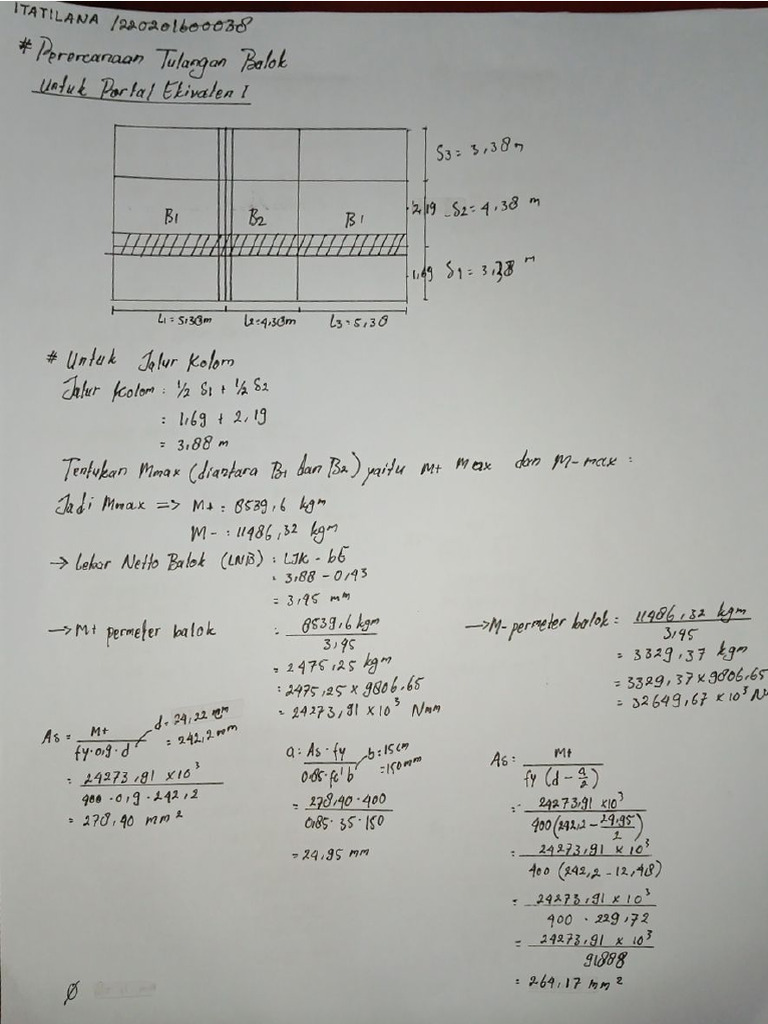 ITATILANA /220201600038
* Perercanaan Tulangan Balok
Untuk Portal Ekivalen I
S3 = 3,38 m
B1 B2 B1
2,19 S2 = 4,38 m
1,69 S1 = 3,38 m
L1 = 5,38m L2 = 4,38m L3 = 5,38
# Untuk Jalur Kolom
Jalur Kolom : 1/2 S1 + 1/2 S2
: 1,69 + 2,19
= 3,88 m
Tentukan Mmax (diantara B1 dan B2) yaitu M+ Max dan M- max :
Jadi Mmax => M+ : 8539,6 kgm
M- : 11486,32 kgm
→ Lebar Netto Balok (LNB) : LJK - bE
= 3,88 - 0,43
= 3,45 mm
→ M+ permeter balok : 8539,6 kgm / 3,45
= 2475,25 kgm
: 2475,25 x 9806,65
= 24273,91 x 10³ Nmm
→ M- permeter balok = 11486,32 kgm / 3,45
= 3329,37 kgm
= 3329,37 x 9806,65
= 32649,67 x 10³ N
As = M+ / fy . 0,9 . d
d = 24,22 mm
= 242,2 mm
= 24273,91 x 10³ / 400 . 0,9 . 242,2
= 278,40 mm²
a : As . fy / 0,85 . fc' b
b = 15 cm
= 150 mm
= 278,40 . 400 / 0,85 . 35 . 150
= 24,95 mm
As : M+ / fy (d - a/2)
= 24273,91 x 10³ / 400 (242,2 - 24,95/2)
= 24273,91 x 10³ / 400 (242,2 - 12,48)
= 24273,91 x 10³ / 400 . 229,72
= 24273,91 x 10³ / 91888
= 264,17 mm²
Ø